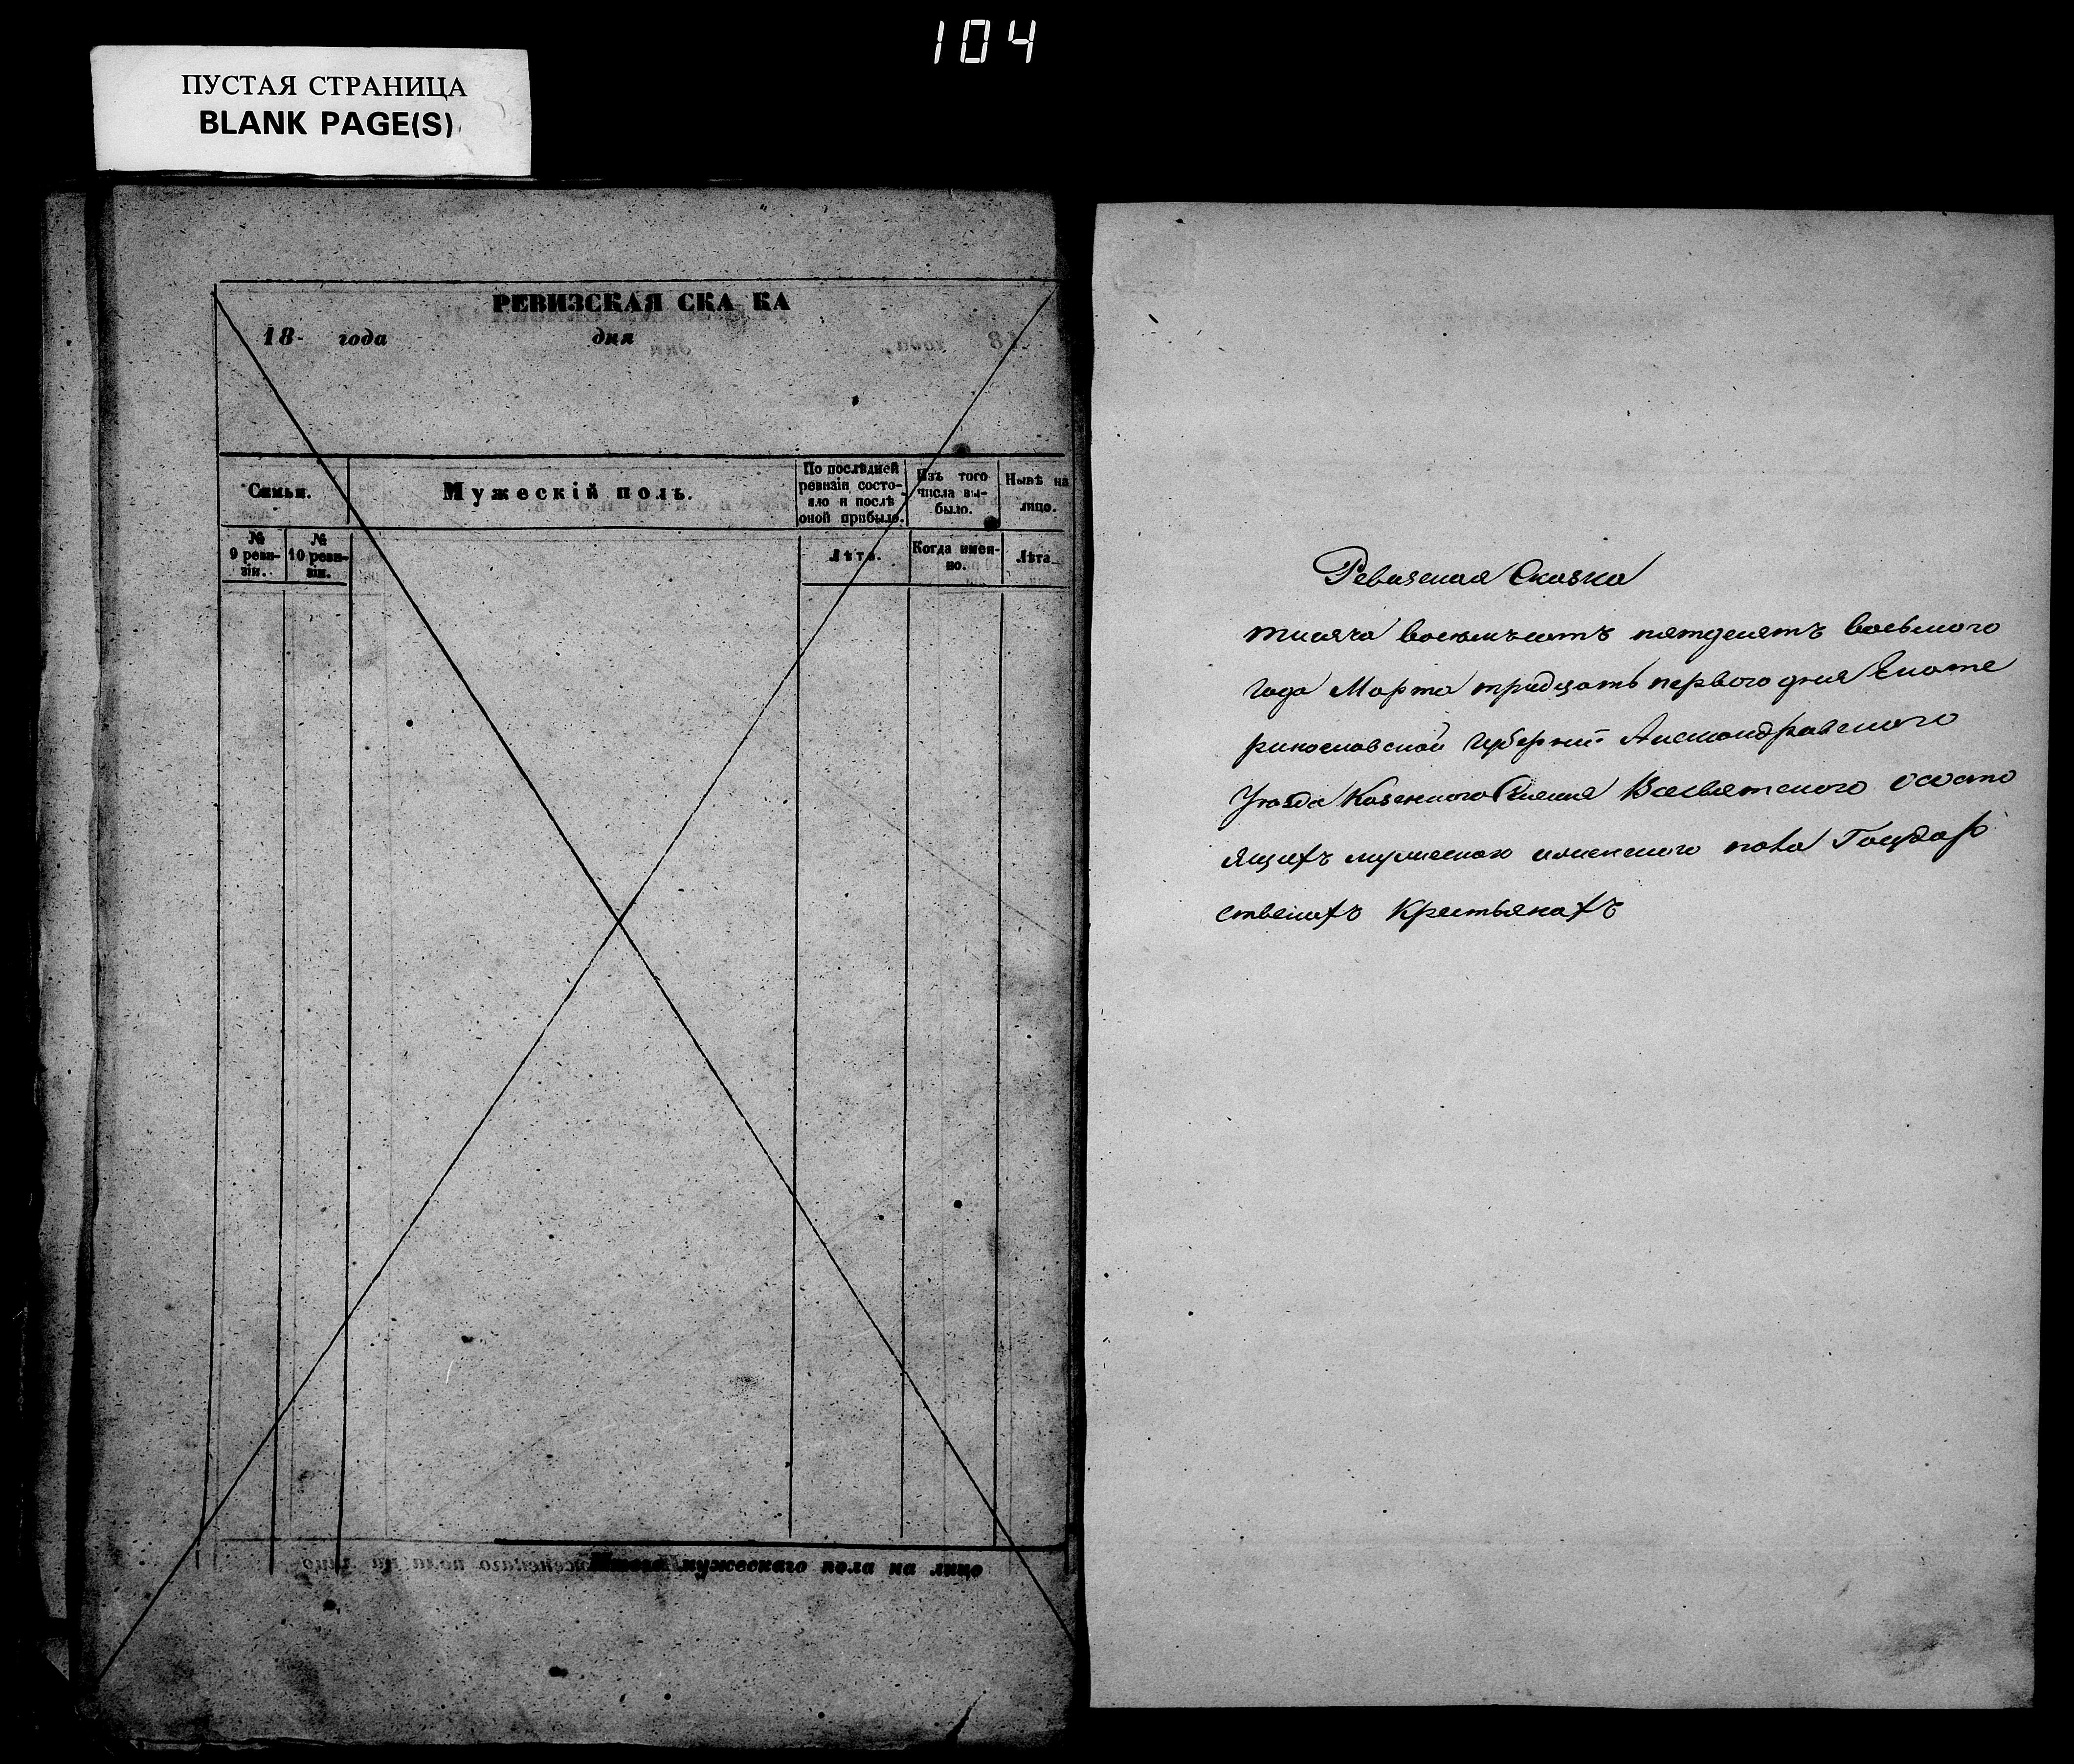 104
ПУСТАЯ СТРАНИЦА
BLANK PAGE(S)
РЕВИЗСКАЯ СКА КА
18- года дня
Семьи.
Мужескій полъ.
По послѣдней ревизіи состо-
яло и послѣ
оной прибыло.
Изъ того
числа вы-
было.
Нынѣ на
лицо.
№
9 реви-
зіи.
№
10 реви-
зіи.
Лѣта.
Когда имен-
но.
Лѣта
мужескаго пола на лицо
Ревизская Сказка
тисяча восемьсотъ пятдесятъ восьмого
года Марта тридцать первого дня Екате
ринославской губерніи Александравского
Уезда Казенного Селения Всесвятского ососто
ящихъ мужеского иженского пола Государ
ственихъ Крестьянахъ